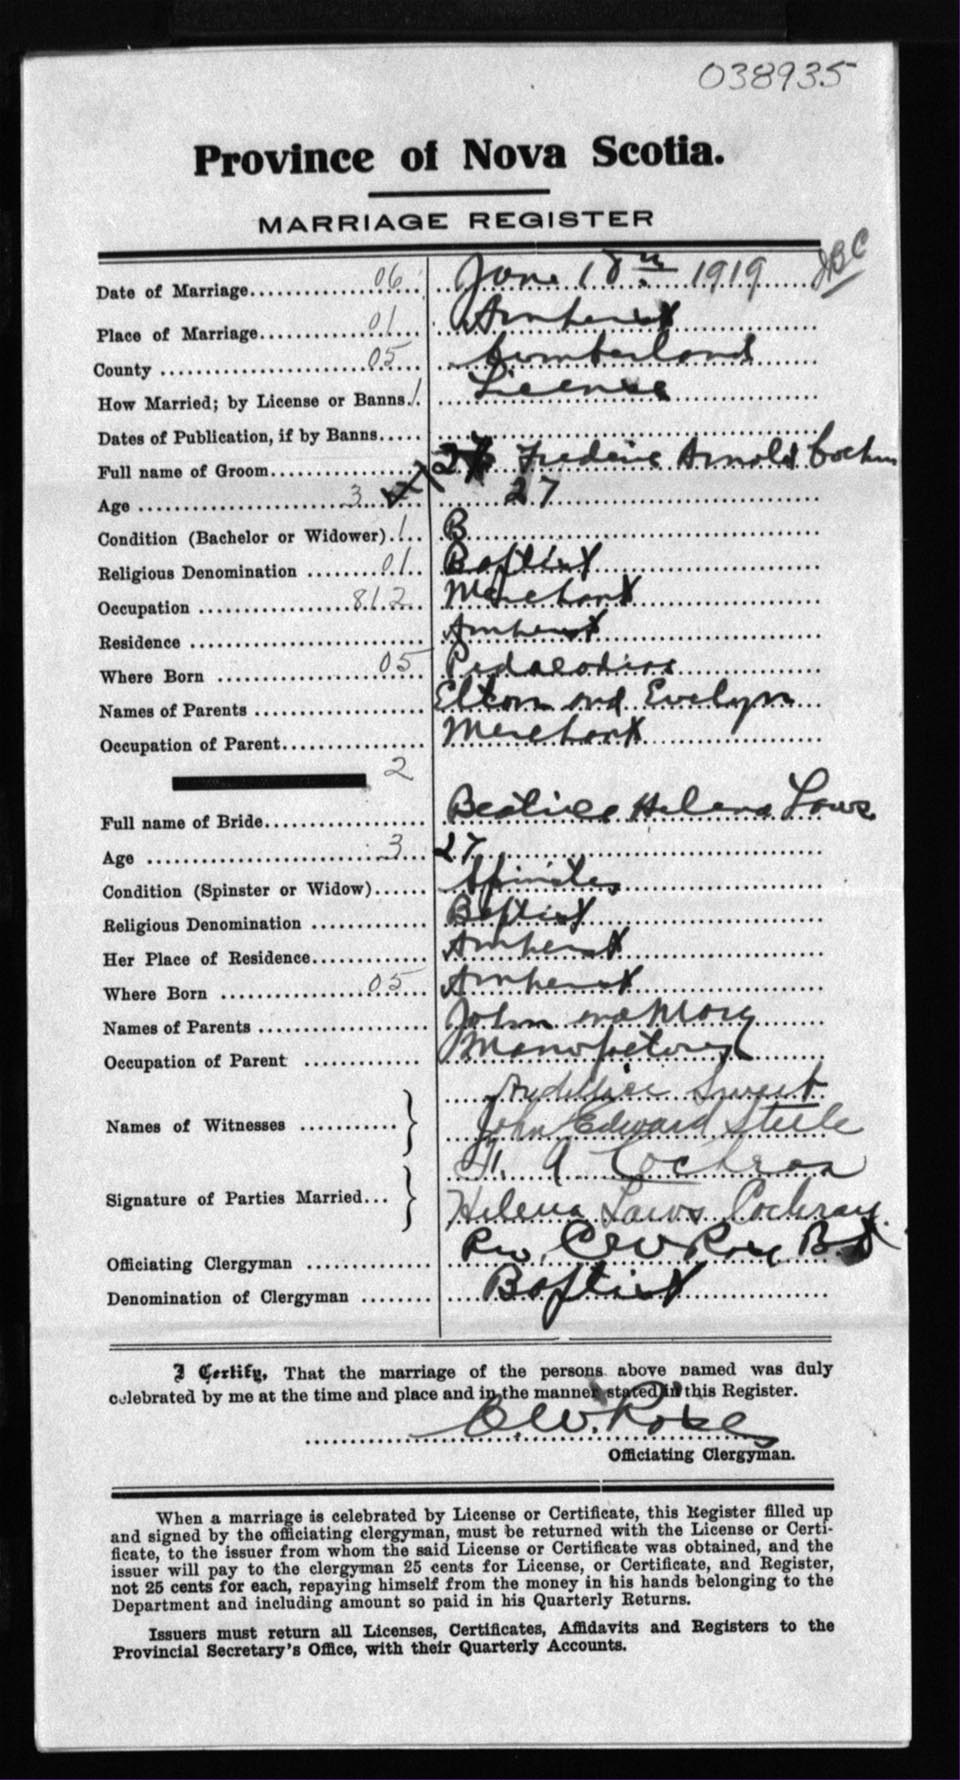 038935
Province of Nova Scotia.
MARRIAGE REGISTER
JBC
Date of Marriage 06 June 18th 1919
Place of Marriage 01 Amherst
County 05 Cumberland
How Married; by License or Banns 1 License
Dates of Publication, if by Banns
Full name of Groom Frederic Arnold Cochran
Age 3 27
Condition (Bachelor or Widower) 1 B
Religious Denomination 01 Baptist
Occupation 812 Merchant
Residence Amherst
Where Born 05
Names of Parents Elton and Evelyn
Occupation of Parent Merchant
2
Full name of Bride Beatrice Helena Laws
Age 3 27
Condition (Spinster or Widow) Spinster
Religious Denomination Baptist
Her Place of Residence Amherst
Where Born 05 Amherst
Names of Parents John and Mary
Occupation of Parent
Names of Witnesses Sweet
John Edward Steele
Signature of Parties Married A Cochran
Helena Laws Cochran
Officiating Clergyman Rev. B.D
Denomination of Clergyman Baptist
I Certify, That the marriage of the persons above named was duly
celebrated by me at the time and place and in the manner stated in this Register.
Officiating Clergyman.
When a marriage is celebrated by License or Certificate, this Register filled up
and signed by the officiating clergyman, must be returned with the License or Certi-
ficate, to the issuer from whom the said License or Certificate was obtained, and the
issuer will pay to the clergyman 25 cents for License, or Certificate, and Register,
not 25 cents for each, repaying himself from the money in his hands belonging to the
Department and including amount so paid in his Quarterly Returns.
Issuers must return all Licenses, Certificates, Affidavits and Registers to the
Provincial Secretary's Office, with their Quarterly Accounts.